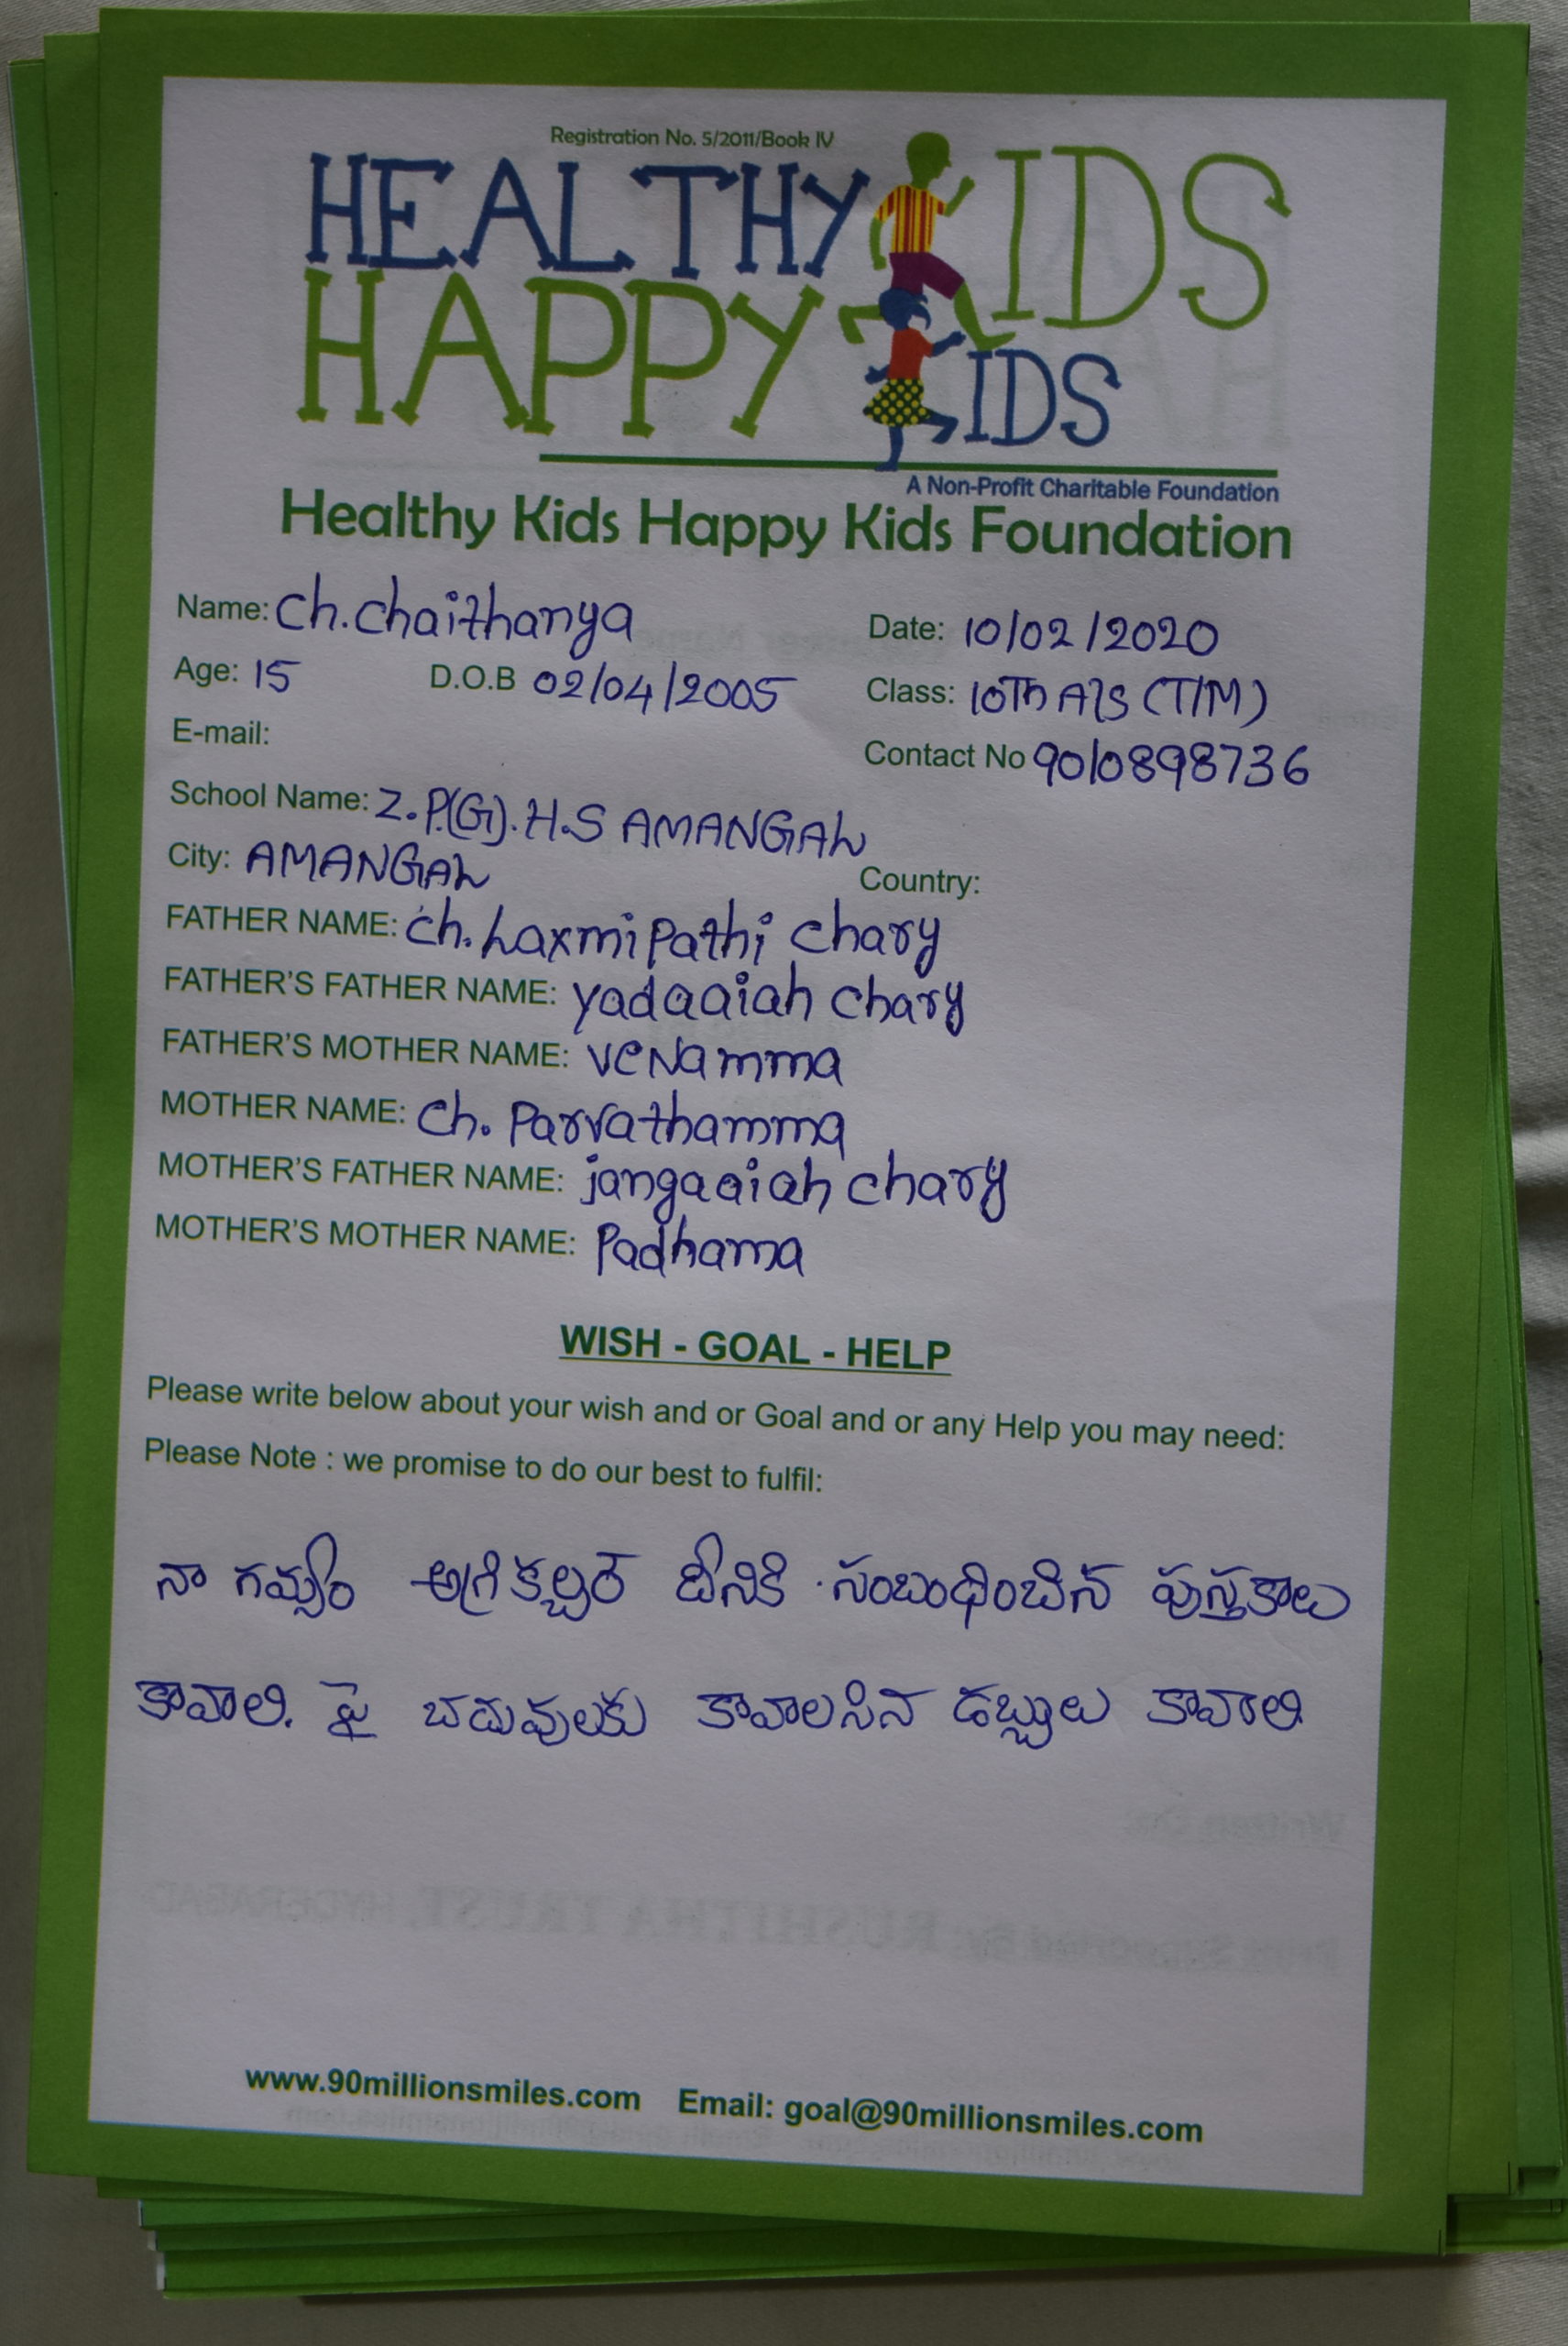 Registration No. 5/2011/Book IV
HEALTHY KIDS
HAPPY KIDS
A Non-Profit Charitable Foundation
Healthy Kids Happy Kids Foundation
Name: Ch. Chaithanya Date: 10/02/2020
Age: 15 D.O.B 02/04/2005 Class: 10Th A/S (T/M)
E-mail: Contact No 9010898736
School Name: Z.P.(G).H.S AMANGAL
City: AMANGAL Country:
FATHER NAME: Ch. Laxmipathi Chary
FATHER'S FATHER NAME: yadaaiah Chary
FATHER'S MOTHER NAME: VeNamma
MOTHER NAME: Ch. Parvathamma
MOTHER'S FATHER NAME: jangaaiah chary
MOTHER'S MOTHER NAME: Padhama
WISH - GOAL - HELP
Please write below about your wish and or Goal and or any Help you may need:
Please Note : we promise to do our best to fulfil:
నా గమ్యం అగ్రికల్చర్ దీనికి సంబంధించిన పుస్తకాలు
కావాలి. పై చదువులకు కావాలసిన డబ్బులు కావాలి
www.90millionsmiles.com Email: goal@90millionsmiles.com